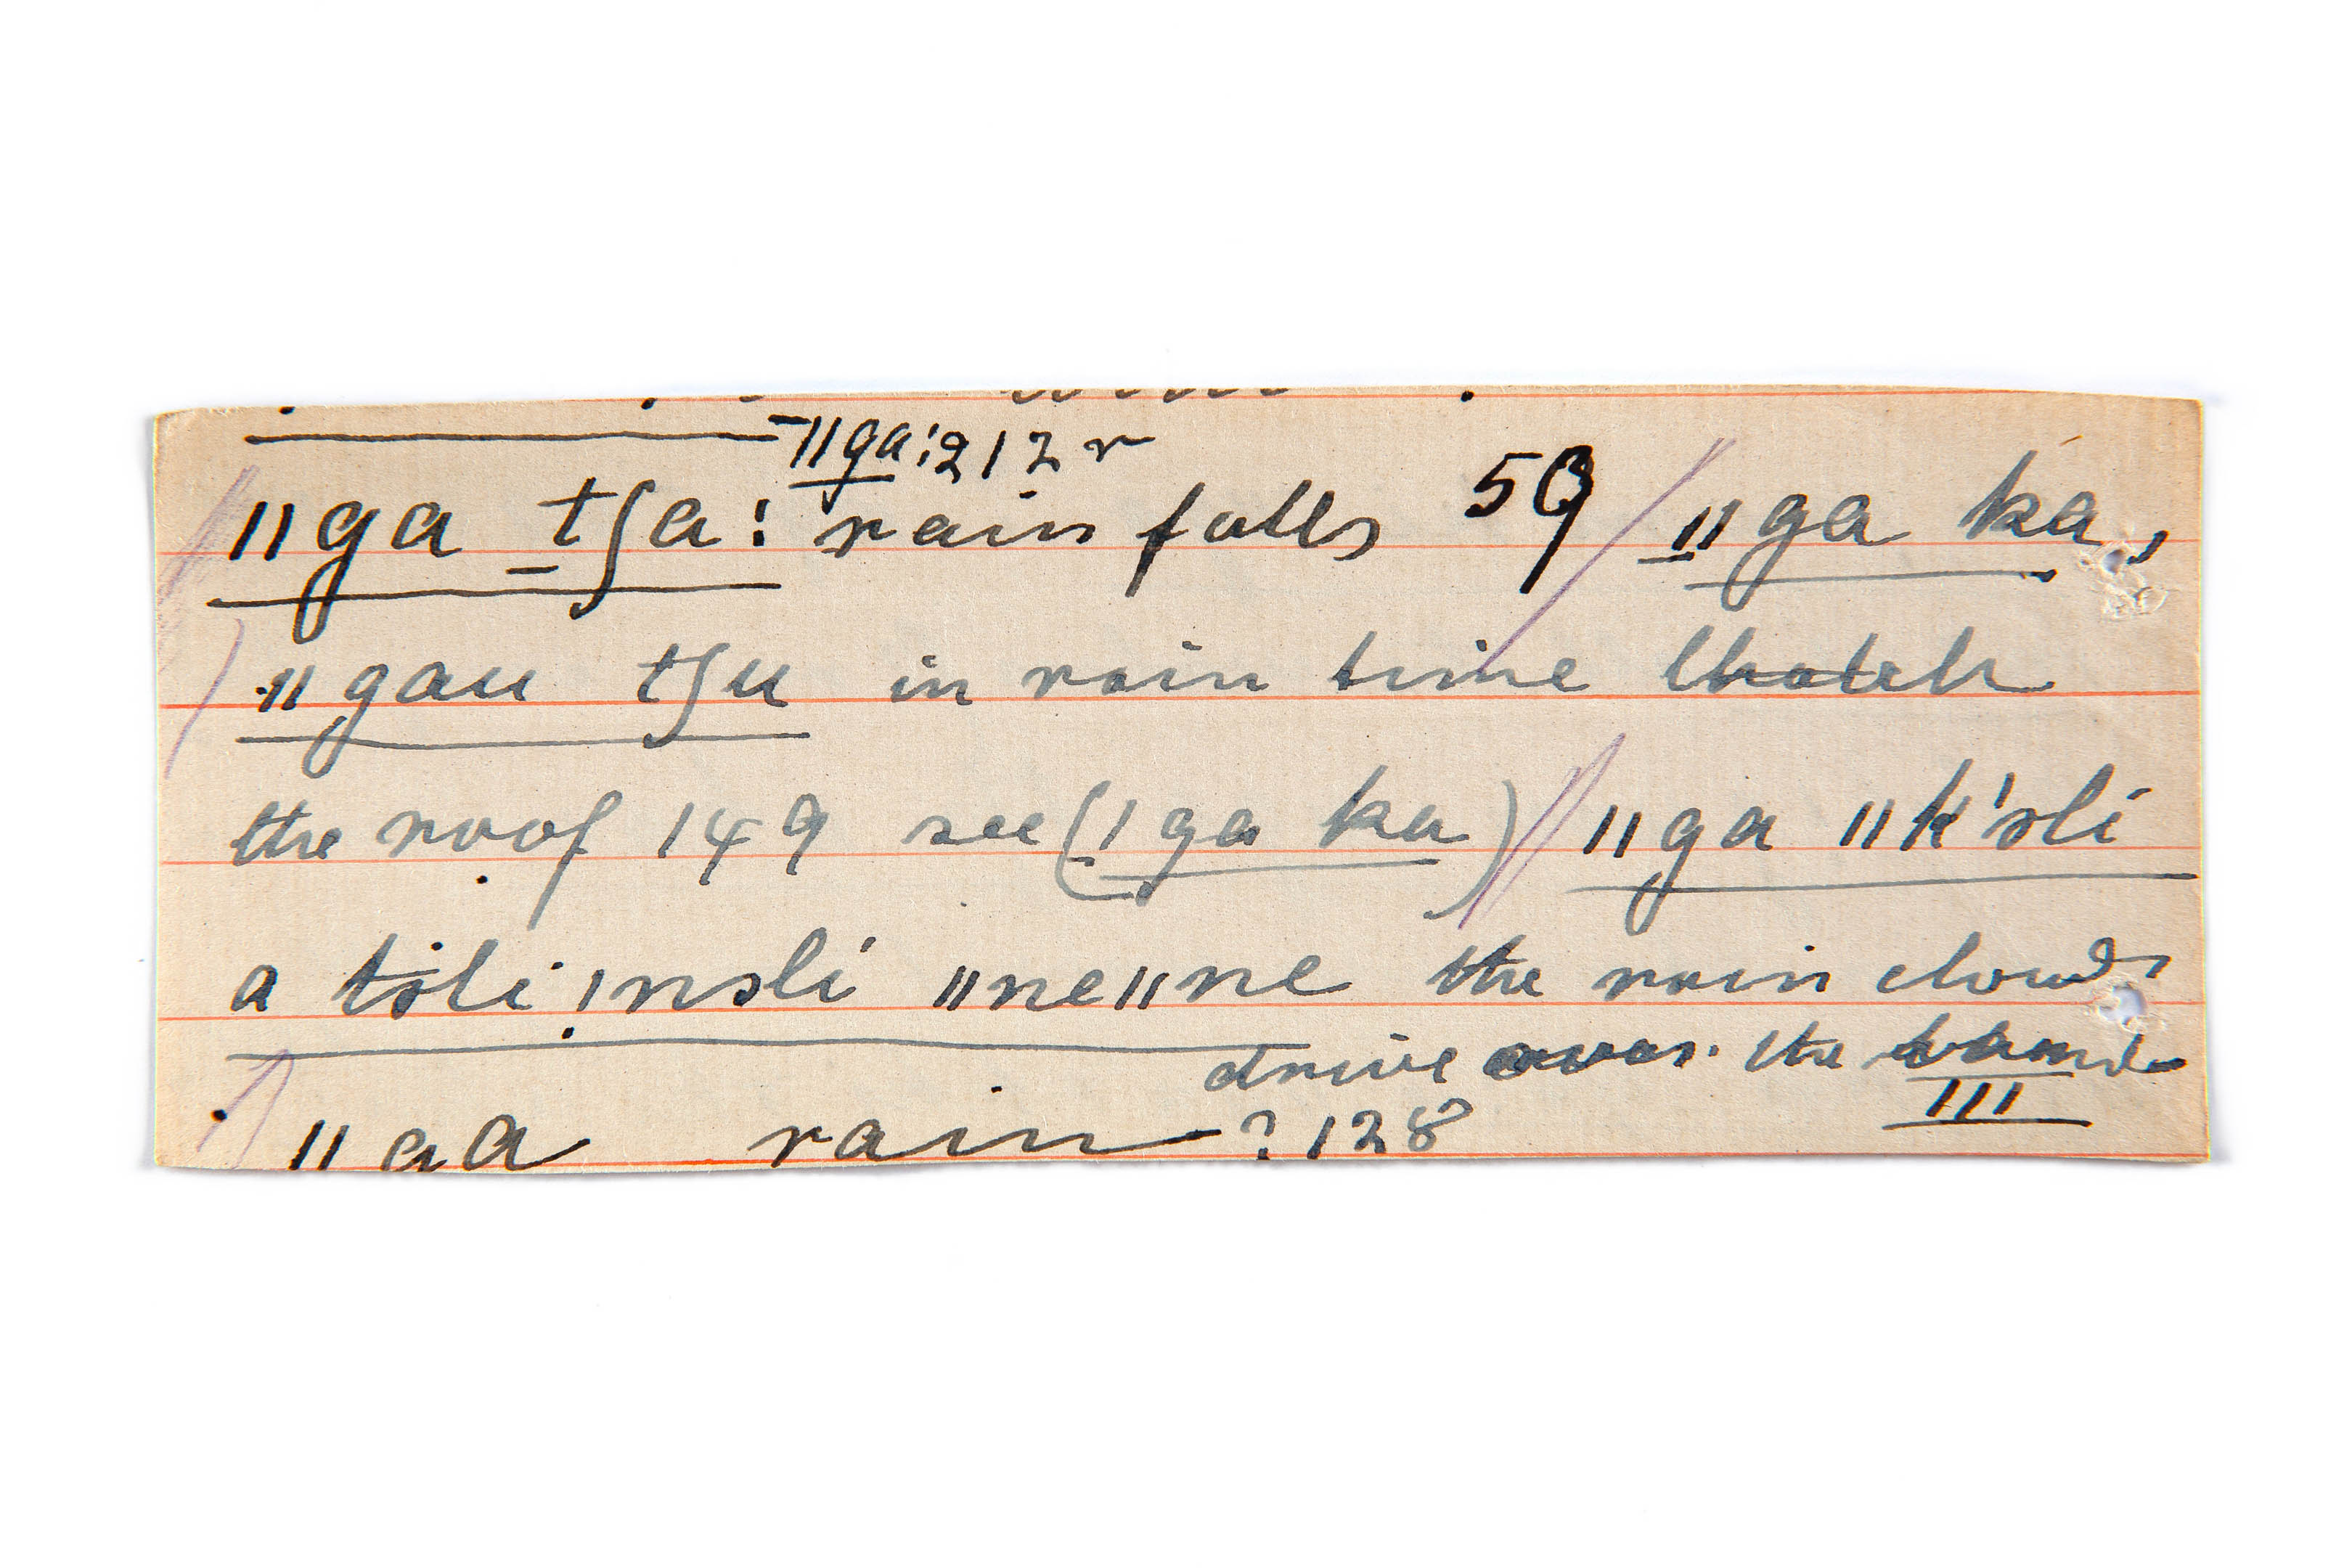 ǁga: 212 r
ǁga tʃa: rain falls 59 / ǁga ka,
ǁgau tʃu in rain time thatch
the roof 149 see (ǀga ka) // ǁga ǁk'sli
a tsli !nsli ǁneǁne the rain clouds
drive over the
ǁga rain ? 128 III